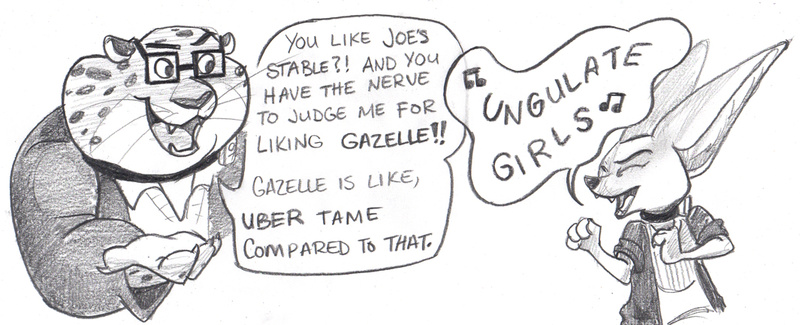 YOU LIKE JOE'S
STABLE?! AND YOU
HAVE THE NERVE
TO JUDGE ME FOR
LIKING GAZELLE!!
GAZELLE IS LIKE,
UBER TAME
COMPARED TO THAT.
♫ UNGULATE
GIRLS ♫